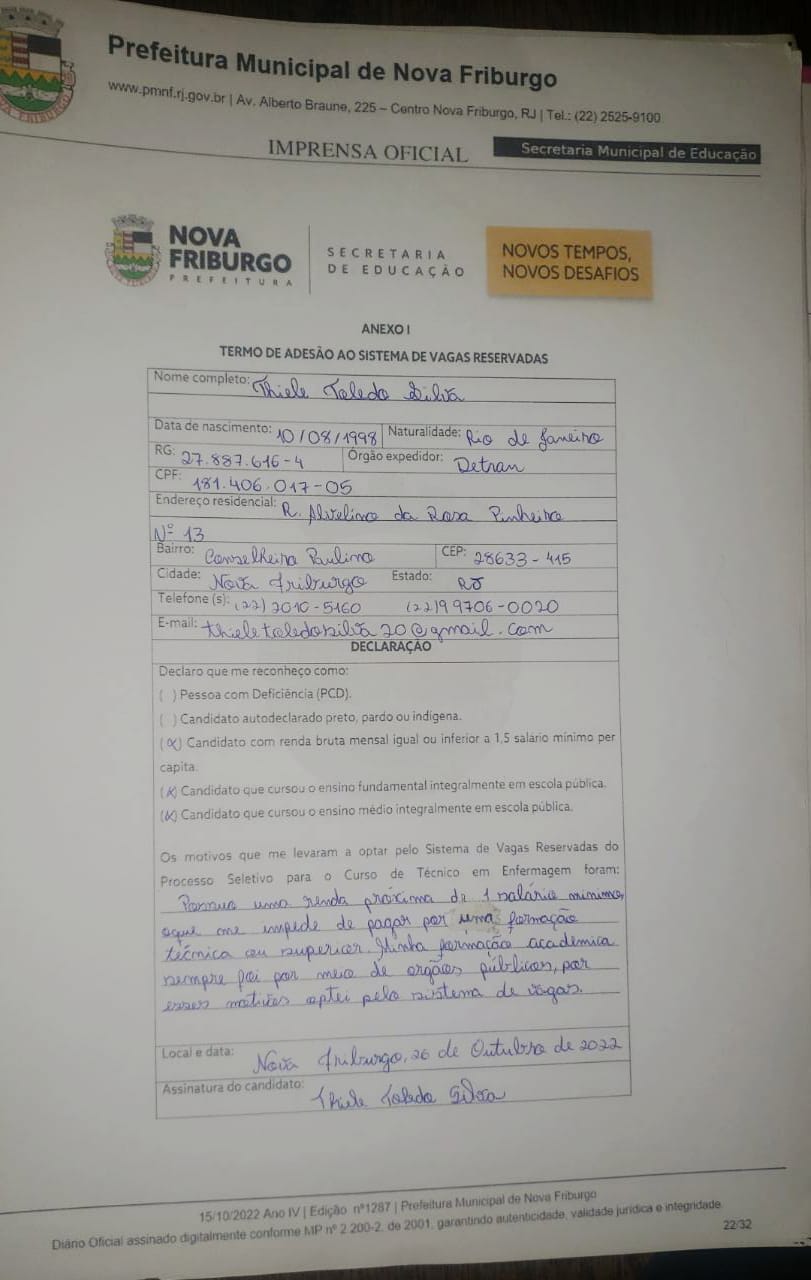 Prefeitura Municipal de Nova Friburgo
www.pmnf.rj.gov.br | Av. Alberto Braune, 225 – Centro Nova Friburgo, RJ | Tel.: (22) 2525-9100
IMPRENSA OFICIAL Secretaria Municipal de Educação
NOVA FRIBURGO
PREFEITURA
SECRETARIA
DE EDUCAÇÃO
NOVOS TEMPOS,
NOVOS DESAFIOS
ANEXO I
TERMO DE ADESÃO AO SISTEMA DE VAGAS RESERVADAS
Nome completo: Thiele Toledo Silva
Data de nascimento: 10/08/1998 Naturalidade: Rio de Janeiro
RG: 27.887.616-4 Órgão expedidor: Detran
CPF: 181.406.017-05
Endereço residencial: R. Alvelino da Rosa Pinheiro
Nº 13
Bairro: Conselheiro Paulino CEP: 28633-415
Cidade: Nova Friburgo Estado: RJ
Telefone (s): (22) 2010-5160 (22) 99706-0020
E-mail: thieletoledosilva20@gmail.com
DECLARAÇÃO
Declaro que me reconheço como:
( ) Pessoa com Deficiência (PCD).
( ) Candidato autodeclarado preto, pardo ou indígena.
(X) Candidato com renda bruta mensal igual ou inferior a 1,5 salário mínimo per
capita.
(X) Candidato que cursou o ensino fundamental integralmente em escola pública.
(X) Candidato que cursou o ensino médio integralmente em escola pública.
Os motivos que me levaram a optar pelo Sistema de Vagas Reservadas do
Processo Seletivo para o Curso de Técnico em Enfermagem foram:
Possuo uma renda próxima de 1 salário mínimo,
oque me impede de pagar por uma formação
técnica ou superior. Minha formação acadêmica
sempre foi por meio de orgãos públicos, por
esses motivos optei pelo sistema de vagas.
Local e data: Nova Friburgo, 26 de Outubro de 2022
Assinatura do candidato: Thiele Toledo Silva
15/10/2022 Ano IV | Edição nº1287 | Prefeitura Municipal de Nova Friburgo
Diário Oficial assinado digitalmente conforme MP nº 2.200-2, de 2001, garantindo autenticidade, validade jurídica e integridade
22/32